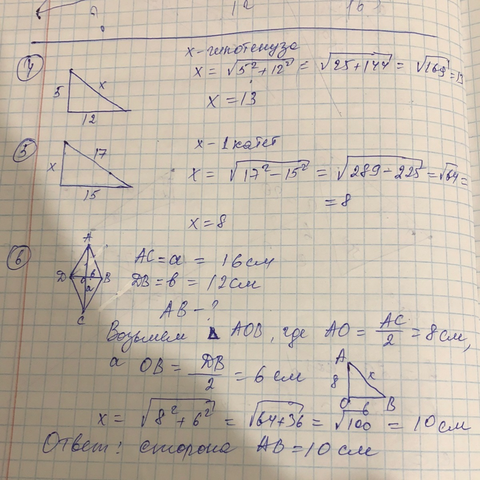 x - гипотенуза
4 x = √5²+12² = √25+144 = √169 = 13
5 x 12
x = 13
x - 1 катет
5 x 17 15
x = √17²-15² = √289-225 = √64 =
= 8
x = 8
6 A D B C a в
AC = a = 16 см
DB = в = 12 см
AB - ?
Возьмем △ AOB, где AO = AC/2 = 8 см,
а OB = DB/2 = 6 см
A 8 x O 6 B
x = √8²+6² = √64+36 = √100 = 10 см
Ответ: сторона AB = 10 см